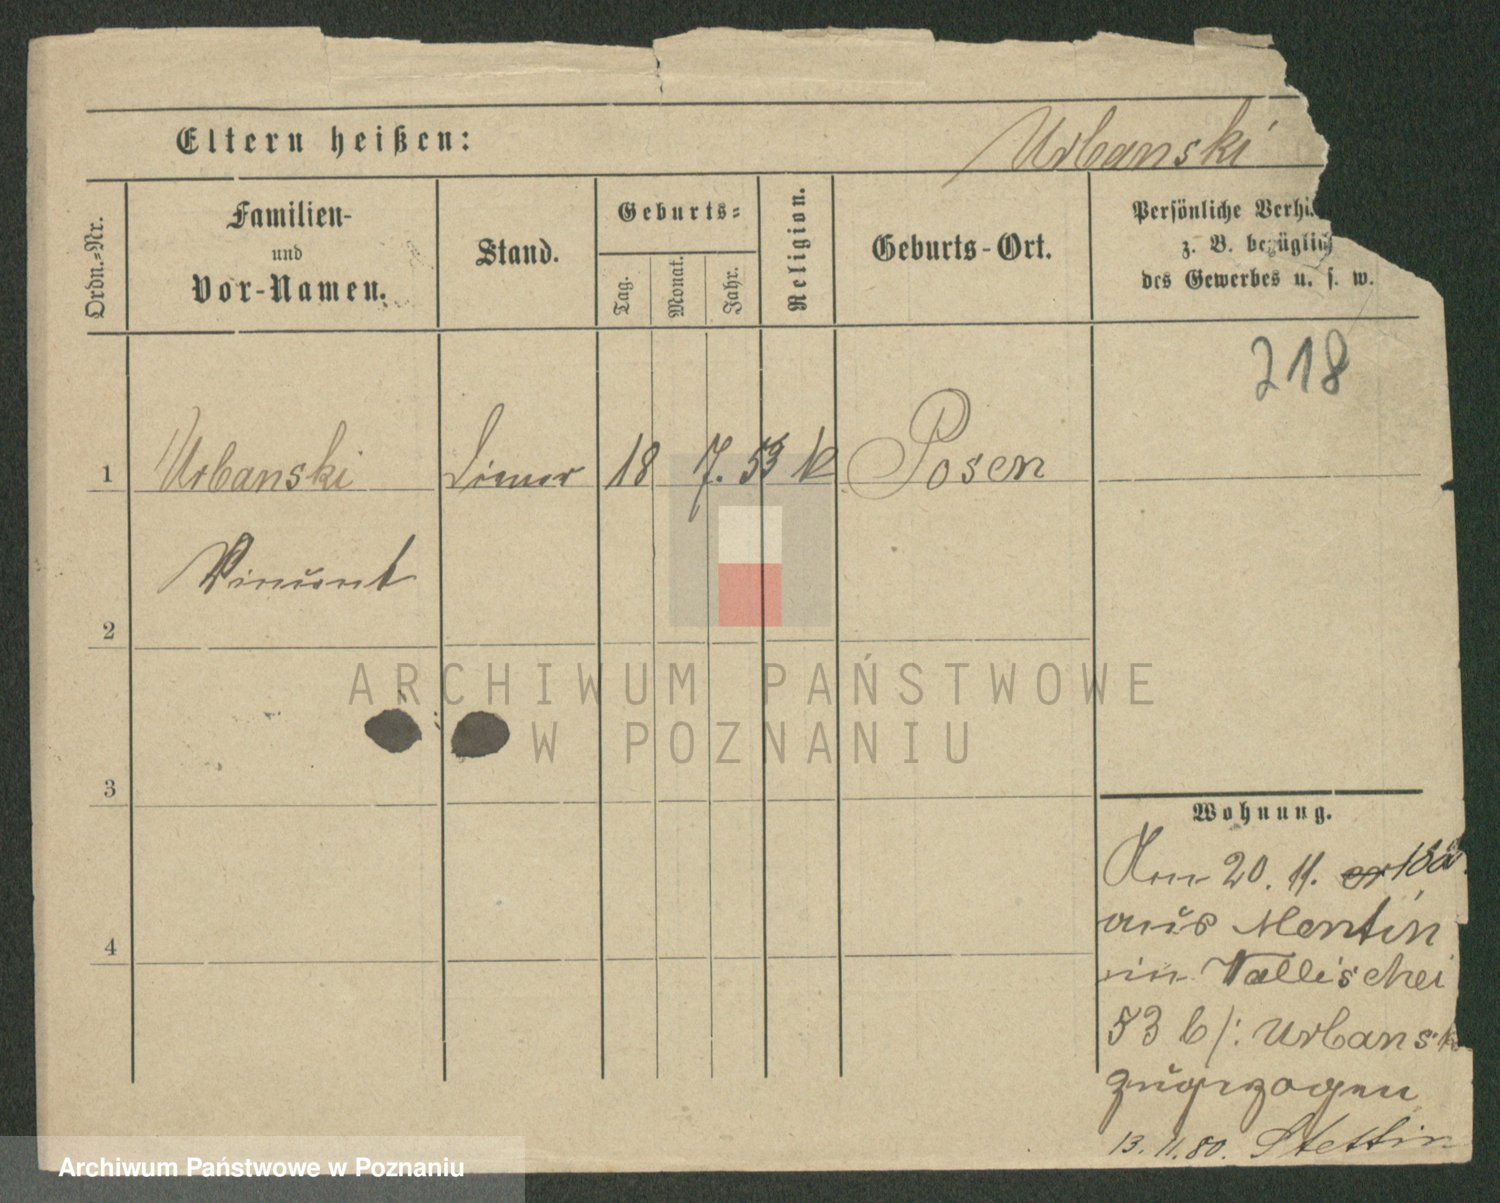 Eltern heißen:
Urbanski
Ordn.-Nr.
Familien-
und
Vor-Namen.
Stand.
Geburts-
Tag.
Monat.
Jahr.
Religion.
Geburts-Ort.
Persönliche Verhä
z. B. bezüglich
des Gewerbes u. s. w.
218
1 Urbanski 18 7. 53 k Posen
Vincent
2
3
4
Wohnung.
20. 11.
aus
in Wallischei
53 b /: Urbansk
zugezogen
13. 11. 80. Stettin
ARCHIWUM PAŃSTWOWE
W POZNANIU
Archiwum Państwowe w Poznaniu